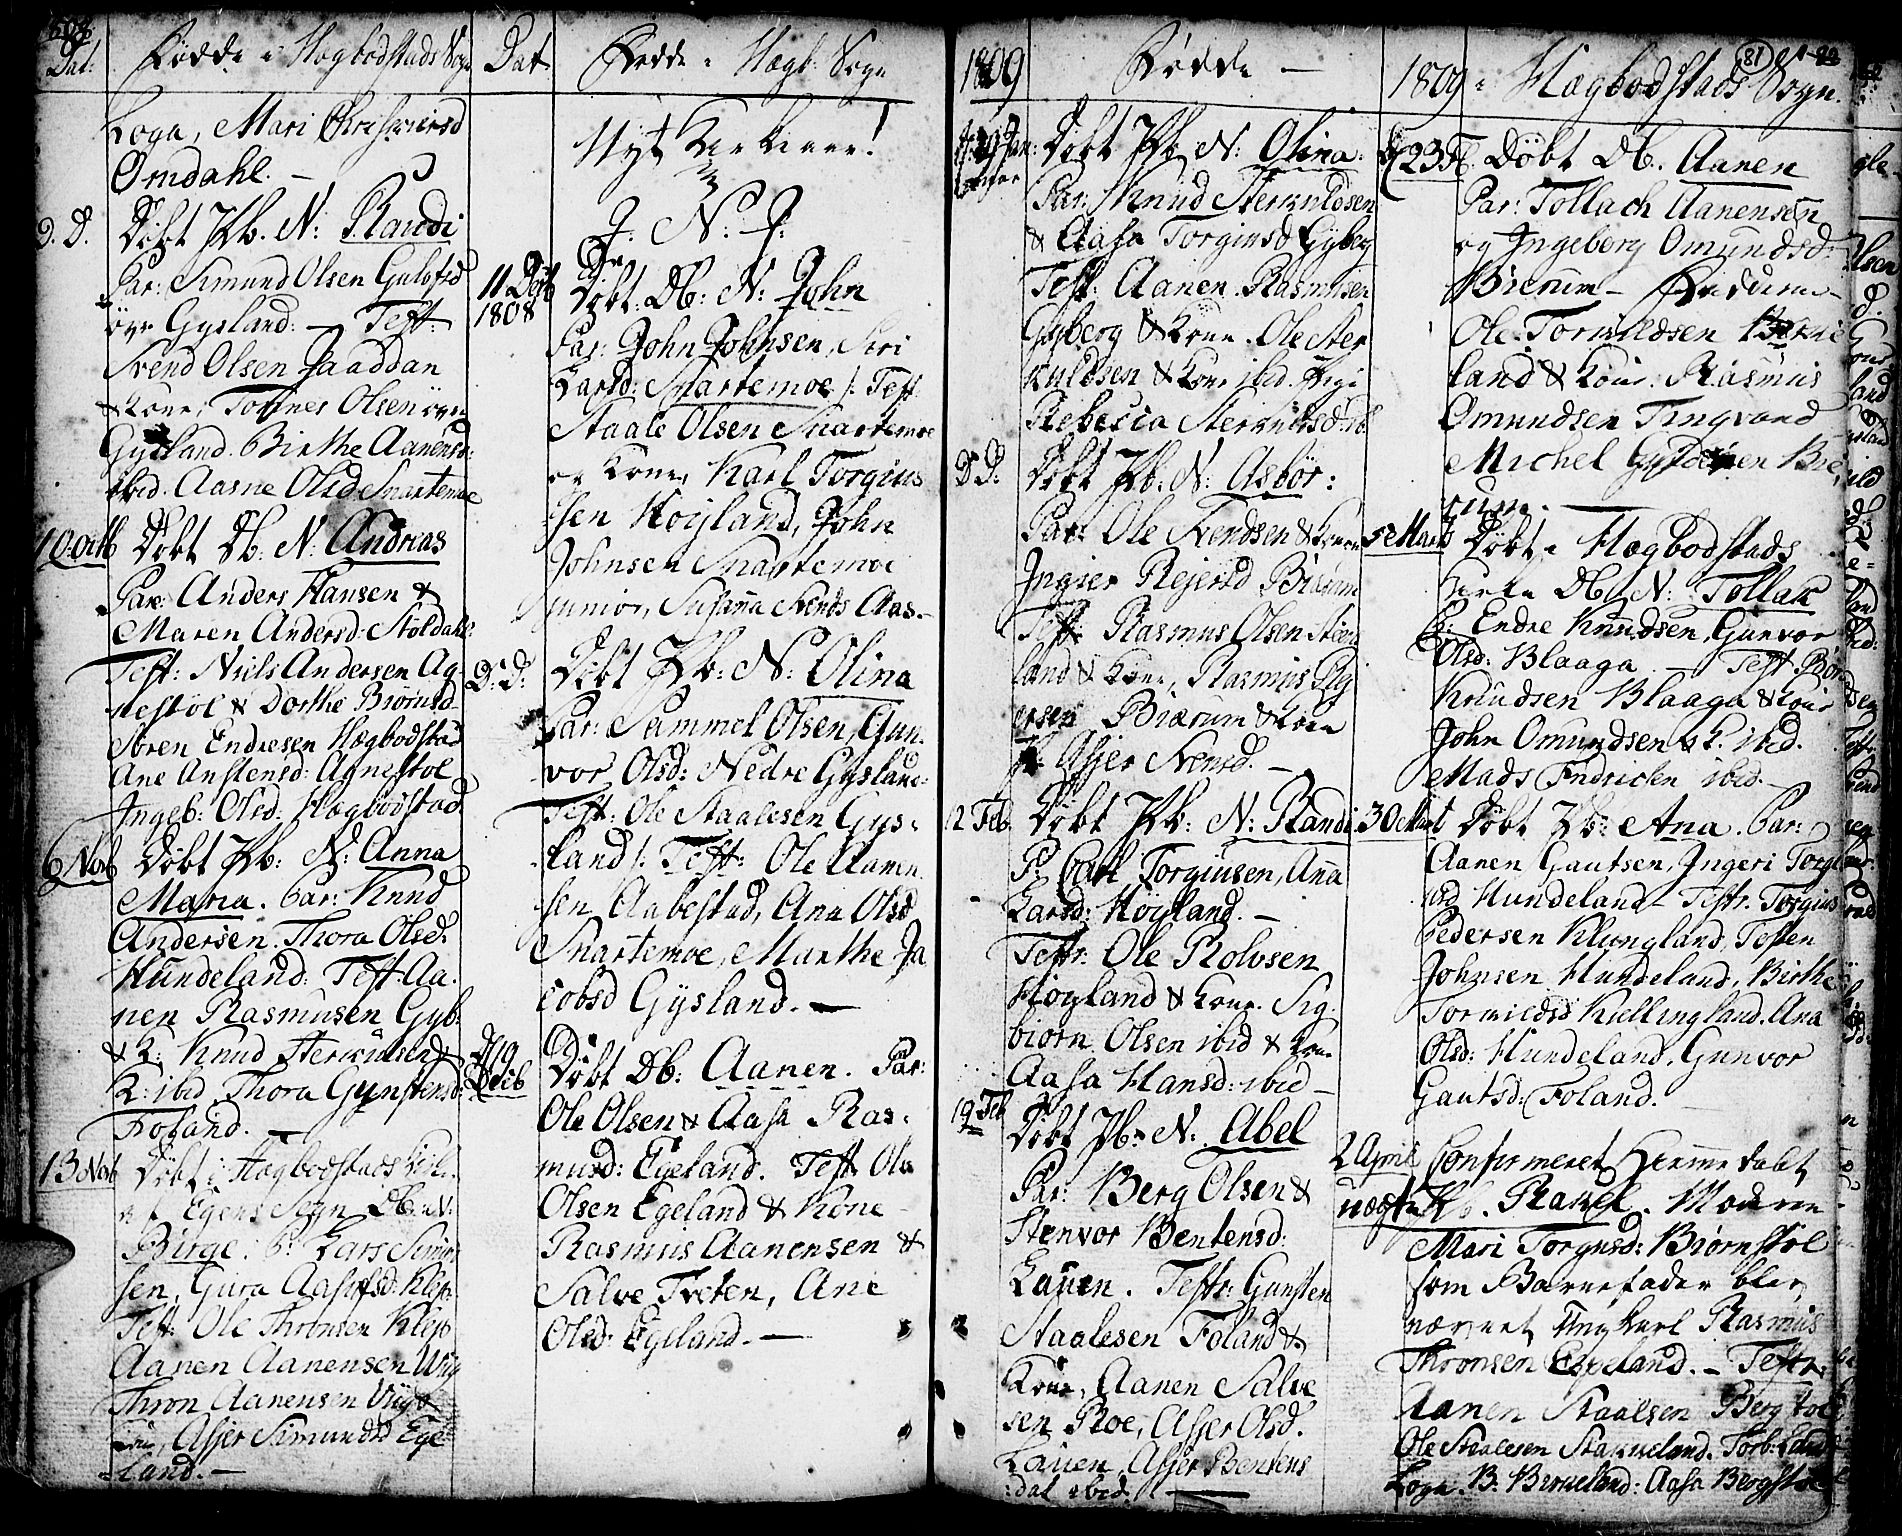 1808
Dat: Fødde i Hægbodstads Sogn
Loga, Mari
Omdahl. —
D. D. Døbt Pb. N: Randi
Par: Simund Olsen Gulofsd
övr Gysland: — Test:
Svend Olsen Jaaddan
& Kone, Tonnes Olsen övre
Gysland. Birthe Aanensd:
ibid. Aasne Olsd Snartemoe
10 Octb Døbt Db: N: Andreas
Par: Anders Hansen &
Maren Andersd: Stoldahl.
Test: Niels Andersen Ag-
nestöl & Dorthe Biörnsd
Sören Endresen Hægbodstad
Ane Anstensd: Agnestöl
Ingeb: Olsd: Hægbodstad
6 Nob Døbt Pb: N: Anna
Maria. Par: Knud
Andersen. Thora Olsd:
Hundeland: Test Aa-
nen Rasmusen Gyb:
& K: Knud Sterkulsen &
K: ibid, Thora Gunstensd:
Foland. —
13 Nob Døbt i Hægbodstads Kirke
af Egens Sogn Db. N:
Birge: P: Lars Simon
sen, Gura Aasulfsd: Klep
Test: Ole Thronsen Klep
Aanen Aanensen
Thron Aanensen &
Asser Simundsd Ege
land. —
Dat Fødde i Hægb: Sogn
Nyt Kirkeaar!
J. N. J.
11 Decb 1808 Døbt. Db: N: John
Par: John Johnsen, Siri
Larsd: Snartemoe /: Test
Staale Olsen Snartemoe
og Kone, Karl Torgius
sen Höyland, John
Johnsen Snartemoe
junior, Susanna Svends Aas-
D: D: Døbt Pb: N: Olina
Par: Sammel Olsen, Gun-
vor Olsd: Nedre Gysland:
Test: Ole Staalesen Gys-
land /: Test: Ole Aanen
sen Aabestad, Ana Olsd
Snartemoe, Marthe Ja
cobsd Gysland. —
19 Decb Døbt Db: Aanen. Par:
Ole Olsen & Aasa Ras-
musd: Egeland. Test Ole
Olsen Egeland & Kone
Rasmus Aanensen &
Salve Tveten, Ane
Olsd: Egeland. —
1809 Fødde —
Døbt Pb. N: Olina:
Par: Knud Sterkuldsen
& Aasa Torgiusd Gyberg
Test: Aanen Rasmusen
Gyberg & Kone. Ole Ster
kuldsen & Kone ibid.
Rebecca Sterkuldsd: ib
D D. Døbt Pb: N: Asbör:
Par: Ole Svendsen & Kone
Ingier Rejersd Birkum
Test: Rasmus Olsen
land & Kone, Rasmus Rej
ersen Biærum & Kone
Asser Svensd. —
12 Feb. Døbt Pb: N: Randi
P: Carl Torgiusen, Ana
Larsd: Höyland. —
Testr: Ole Rolvsen
Höyland & Kone. Sig-
biörn Olsen ibid & Kone
Aasa Hansd: ibid —
19 Feb Døbt Pb: N: Abel
Par: Berg Olsen &
Stenvor Bentensd:
Lauen. Testr: Gunsten
Staalesen Foland &
Kone, Aanen Salve
sen Roe, Asser Olsd.
Lauen, Asser Bentens
dat ibid. —
81
1809 i Hægbodstads Sogn.
23 F. Døbt Db. Aanen
Par: Tollach Aanensen
og Ingeborg Omundsd:
Bierum —
Ole Torkuldsen
land & Kone. Rasmus
Omundsen Tingvand
Michel Gydesen Bie
rum. —
5 Marts Døbt i Hægbodstads
Kirke Db. N: Tollak
P: Endre Knudsen, Gunvor
Olsd: Blaaga — Test Biör
Knudsen Blaaga & Kone
John Omundsen & K. ibid.
Mads Endricsen ibid. —
30 Mart Døbt Pb: Ana. Par:
Aanen Gautsen, Ingeri Torgi
usd Hundeland — Testr. Torgius
Pedersen Klungland, Testen
Johnsen Hundeland, Birthe
Torkildsd Killingland. Ana
Olsd: Hundeland, Gunvor
Gautsd: Foland.
2 April Confirmeret Hiemmedøbt
uægte Pb. Rakel. Moderen
Mari Torgiusd: Biörnstöl
som Barnefader blev
nævnet Ungkarl Rasmus
Thronsen Espeland. — Testr.
Aanen Staalsen Bergstöl
Ole Staalesen Stakkeland. Torb: Lands
Loga. B. Birkeland: Aasa Bergstöl